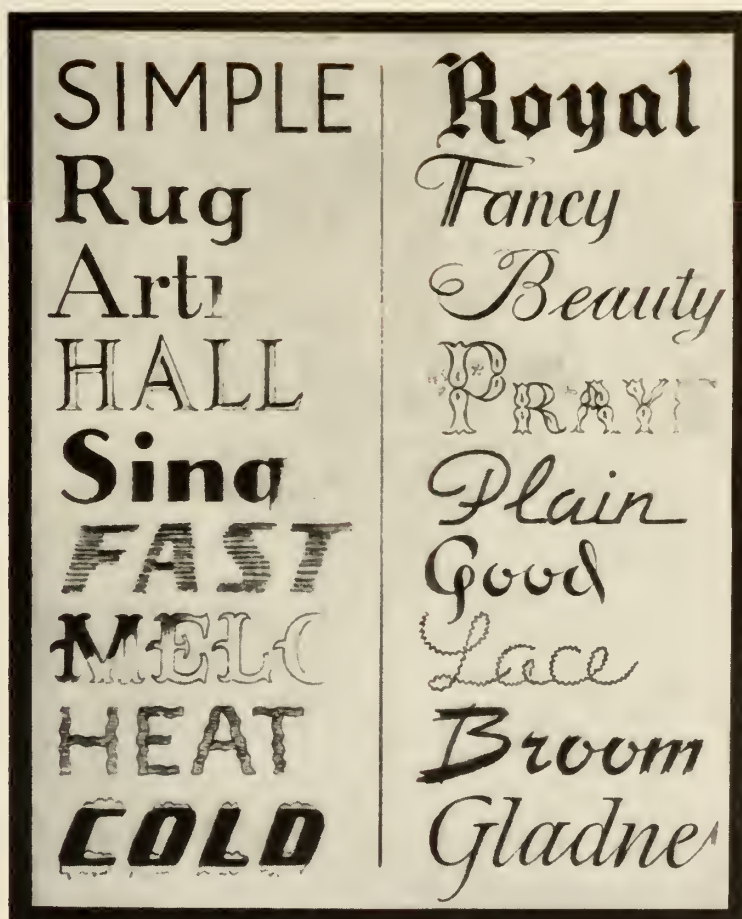 SIMPLE
Rug
Arti
HALL
Sing
FAST
MELO
HEAT
COLD
Royal
Fancy
Beauty
PRAYE
Plain
Good
Lace
Broom
Gladne